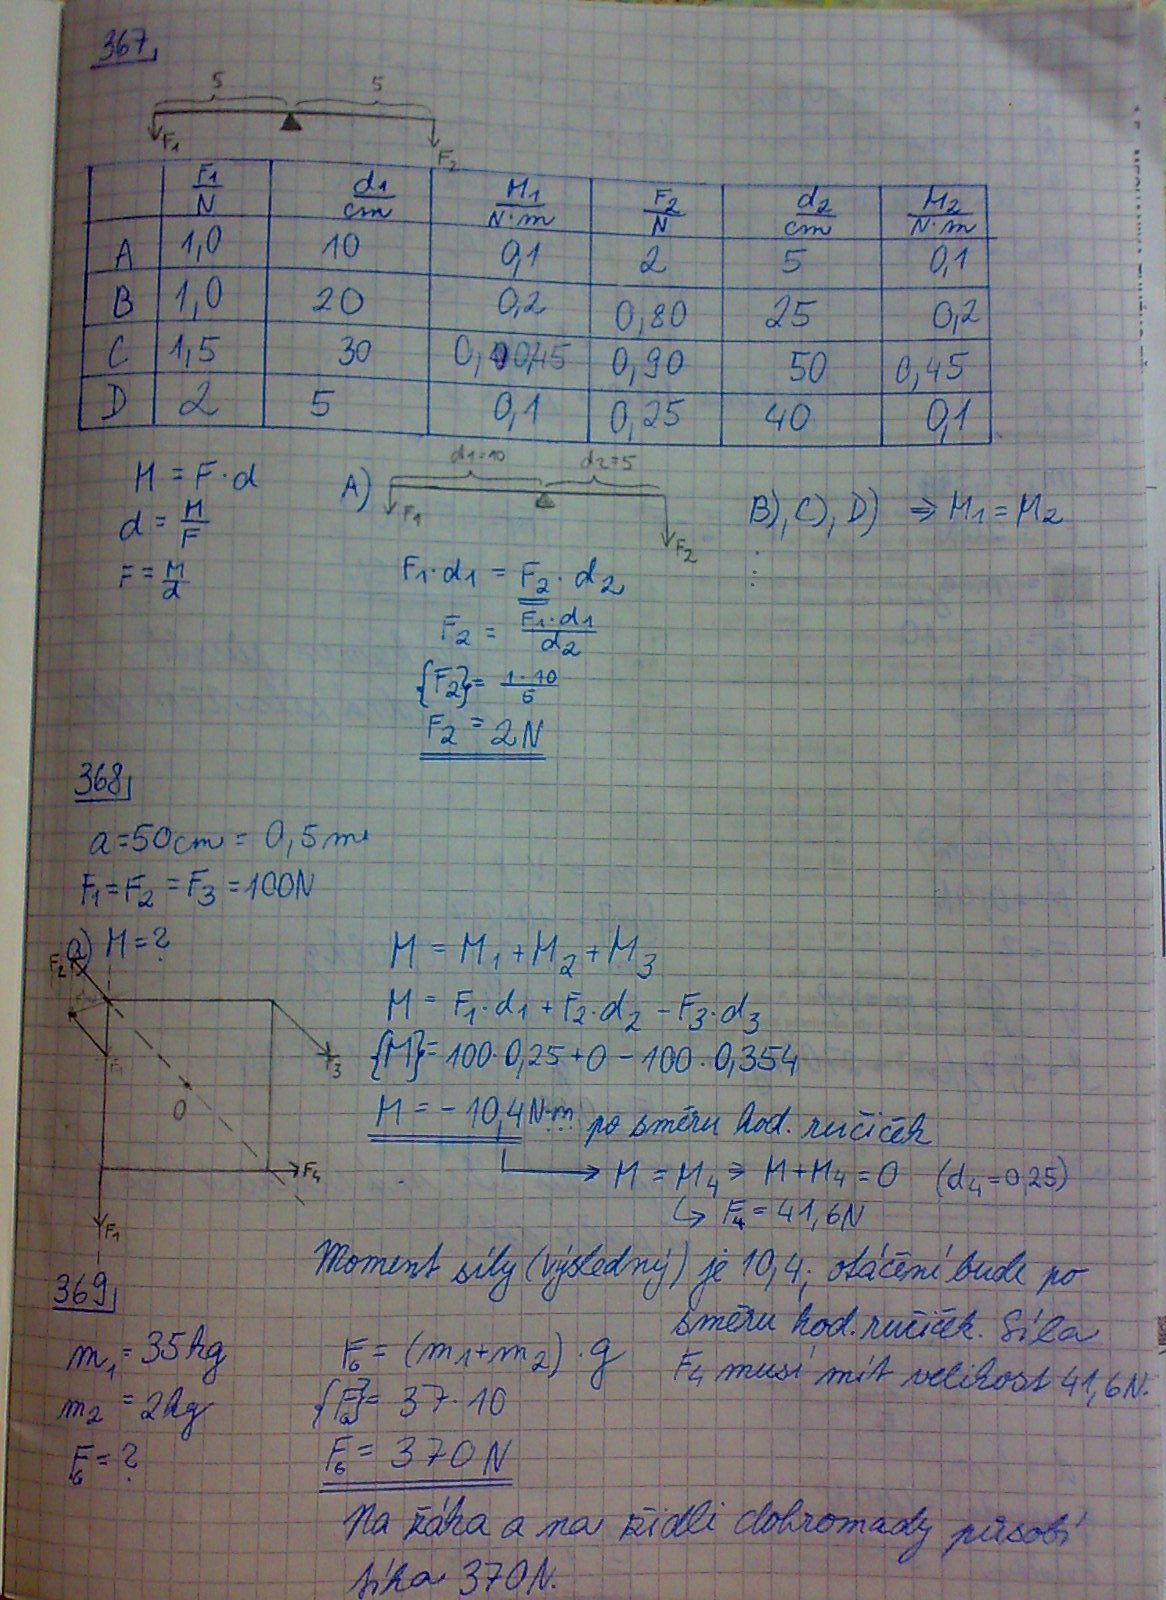 367
5 5
F1 F2
F1/N d1/cm M1/N·m F2/N d2/cm M2/N·m
A 1,0 10 0,1 2 5 0,1
B 1,0 20 0,2 0,80 25 0,2
C 1,5 30 0,45 0,90 50 0,45
D 2 5 0,1 0,25 40 0,1
M = F·d
d = M/F
F = M/d
A) d1=10 d2=5
F1 F2
F1·d1 = F2·d2
F2 = F1·d1/d2
{F2} = 1·10/5
F2 = 2N
B), C), D) ⇒ M1 = M2
368
a = 50cm = 0,5m
F1 = F2 = F3 = 100N
a) M = ?
F2
F1
F3
O
F4
F1
M = M1 + M2 + M3
M = F1·d1 + F2·d2 - F3·d3
{M} = 100·0,25 + 0 - 100·0,354
M = -10,4 N·m po směru hod. ručiček
→ M = M4 ⇒ M + M4 = 0 (d4 = 0,25)
↳ F4 = 41,6N
Moment síly (výsledný) je 10,4; otáčení bude po
směru hod. ručiček. Síla
F4 musí mít velikost 41,6N.
369
m1 = 35kg
m2 = 2kg
FG = ?
FG = (m1+m2)·g
{FG} = 37·10
FG = 370N
Na žáka a na židli dohromady působí
síla 370N.